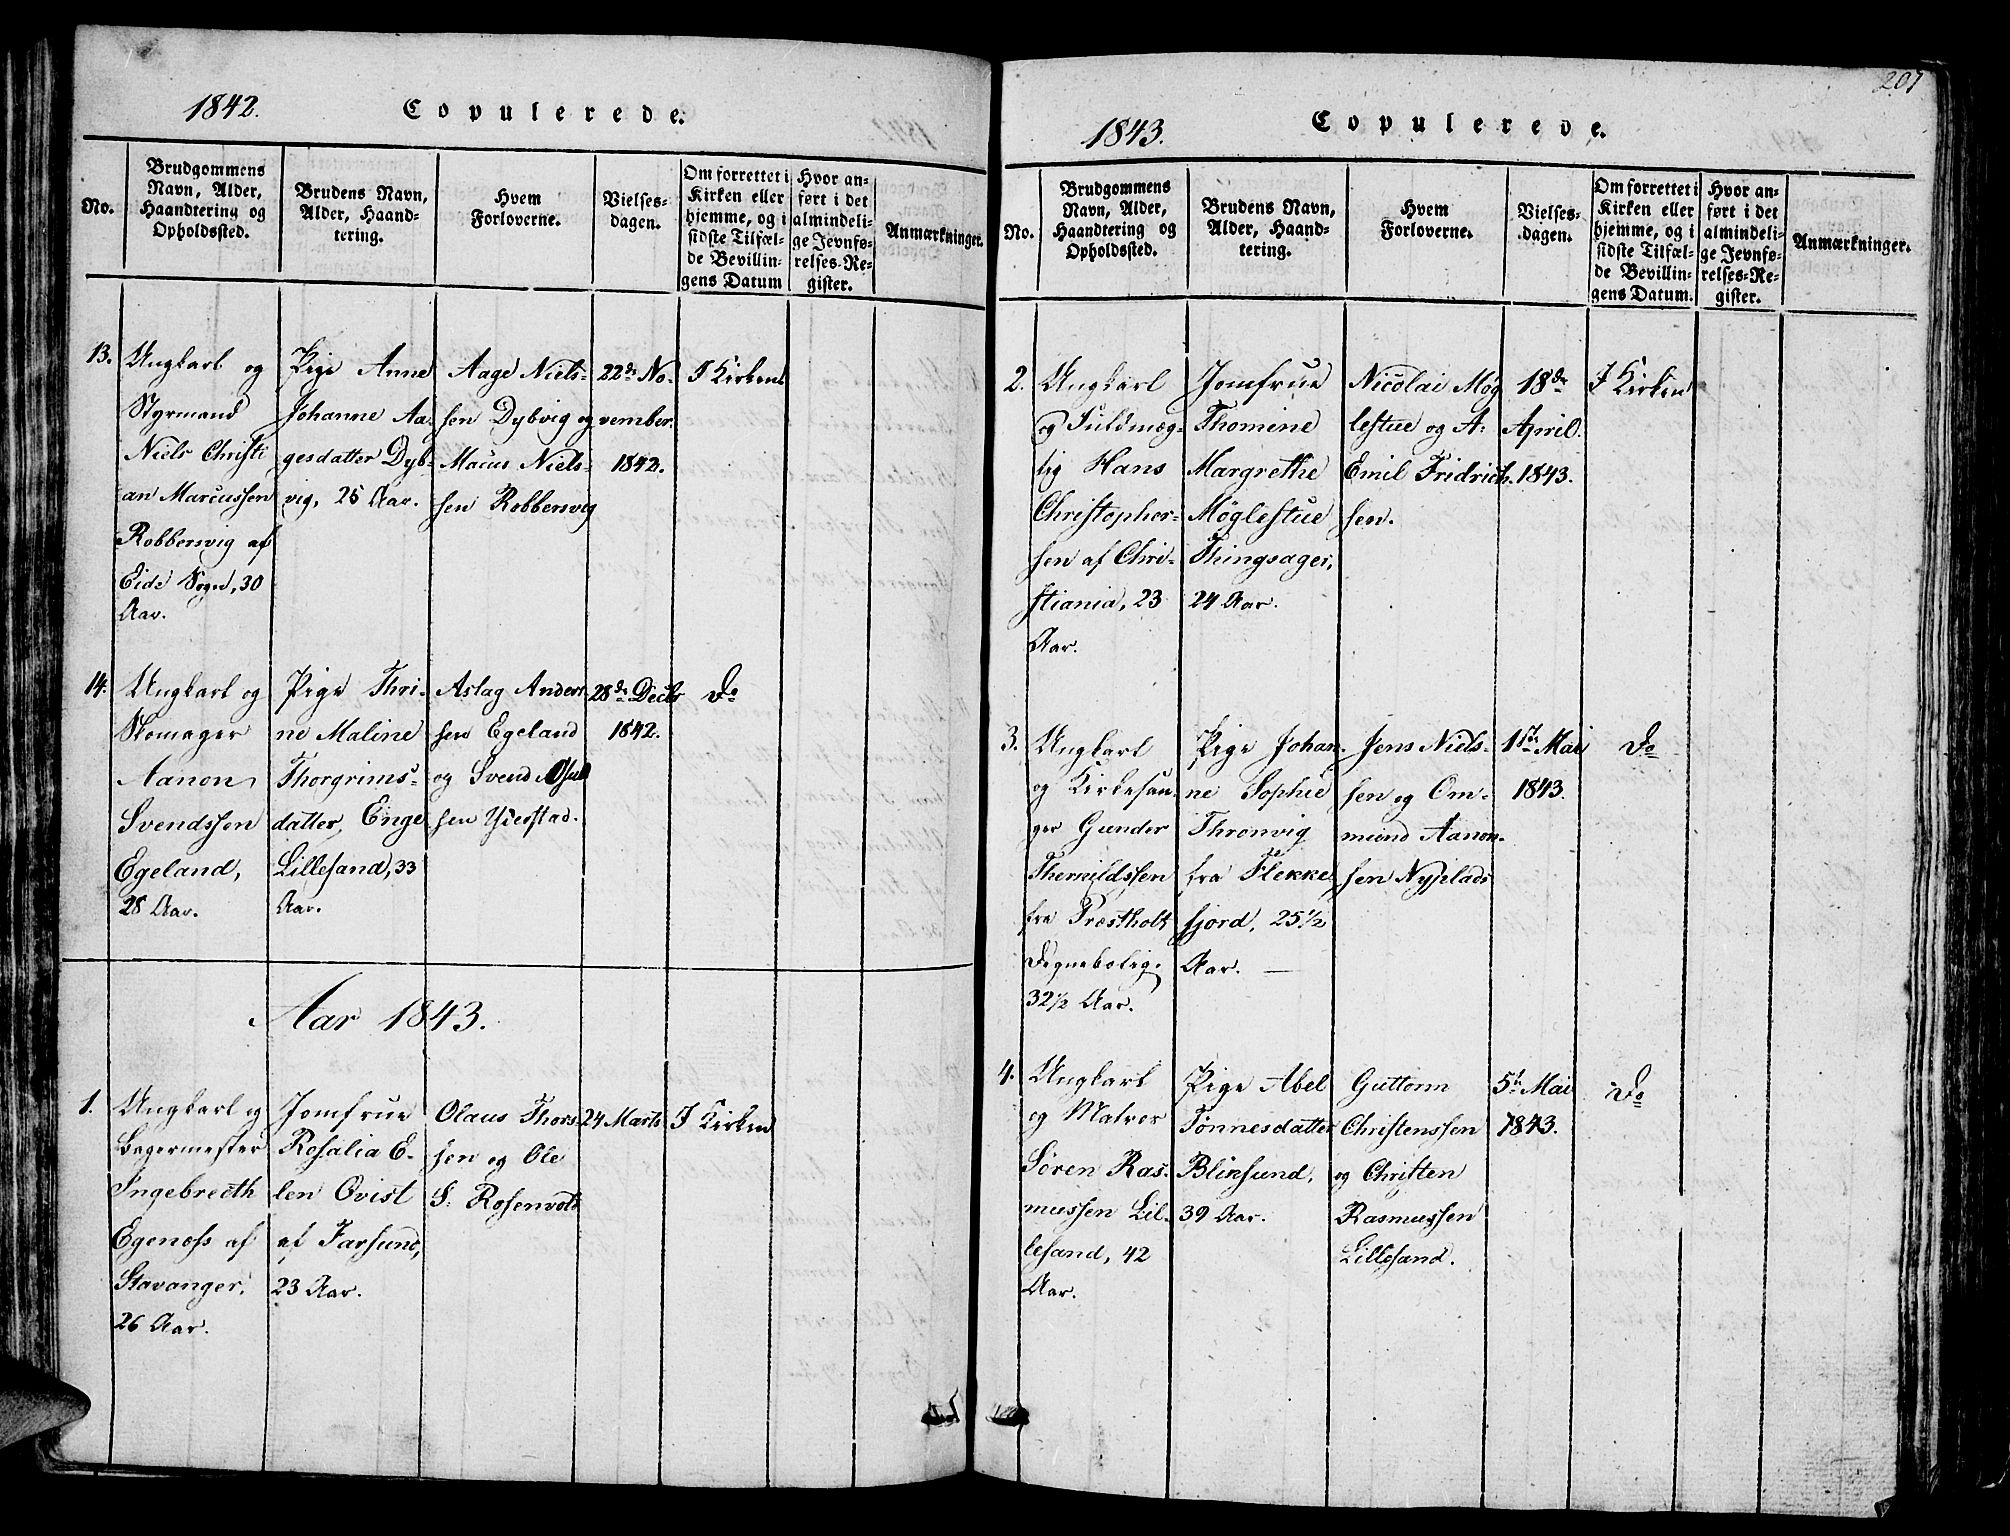 1842. Copulerede.
No.
Brudgommens
Navn, Alder,
Haandtering og
Opholdssted.
Brudens Navn,
Alder, Haand-
tering.
Hvem
Forloverne.
Vielses-
dagen.
Om forrettet i
Kirken eller
hjemme, og i
sidste Tilfæl-
de Bevillin-
gens Datum
Hvor an-
ført i det
almindeli-
ge Jevnfø-
relses-Re-
gister.
Anmærkninger.
13.
Ungkarl og
Styrmand
Niels Christi
an Marcussen
Robbersvig af
Eide Sogn, 30
Aar.
Pige Anne
Johanne Aa-
gesdatter Dyb-
vig, 25 Aar.
Aage Niels-
sen Dybvig og
Macus Niels-
sen Robbersvig
22de No-
vember.
1842.
I Kirken
14.
Ungkarl og
Skomager
Aanon
Svendssen
Egeland,
28 Aar.
Pige Thri-
ne Maline
Thorgrims-
datter, Enge
Lillesand, 33
Aar.
Aslag Anders
sen Egeland
og Svend
sen Yderstad.
28de Decbr
1842.
Do
Aar 1843.
1.
Ungkarl og
Bagermester
Ingebrecth
Egenæss af
Stavanger,
26 Aar.
Jomfrue
Rosalia E-
len Qvist
af Farsund,
23 Aar.
Olaus Thors-
sen og Ole
S. Rosenvold
24 Marts
I Kirken
207
1843. Copulerede.
No.
Brudgommens
Navn, Alder,
Haandtering og
Opholdssted.
Brudens Navn,
Alder, Haand-
tering.
Hvem
Forloverne.
Vielses-
dagen.
Om forrettet i
Kirken eller
hjemme, og i
sidste Tilfæl-
de Bevillin-
gens Datum.
Hvor an-
ført i det
almindeli-
ge Jevnfø-
relses-Re-
gister.
Anmærkninger.
2.
Ungkarl
og Fuldmæg-
tig Hans
Christophor-
sen af Chri-
stiania, 23
Aar.
Jomfrue
Thomine
Margrethe
Møglestue
Thingsager,
24 Aar.
Nicolai Møg
lestue og A:
Emil Fridrich-
sen.
18de
April.
1843.
I Kirken
3.
Ungkarl
og Kirkesan-
ger Gunder
Therkildssen
fra Præstholt
Degnebolig,
32½ Aar.
Pige Johan-
ne Sophie
Thronvig
fra Flekke
fjord, 25½
Aar.
Jens Niels-
sen og Om-
mund Aanon-
sen Nypelads
1ste Mai
1843.
Do
4.
Ungkarl
og Matros
Søren Ras-
mussen Lil-
lesand, 42
Aar.
Pige Abel
Tønnesdatter
Blinsund,
39 Aar.
Guttorm
Christenssen
og Christen
Rasmussen
Lillesand.
5te Mai
1843.
Do